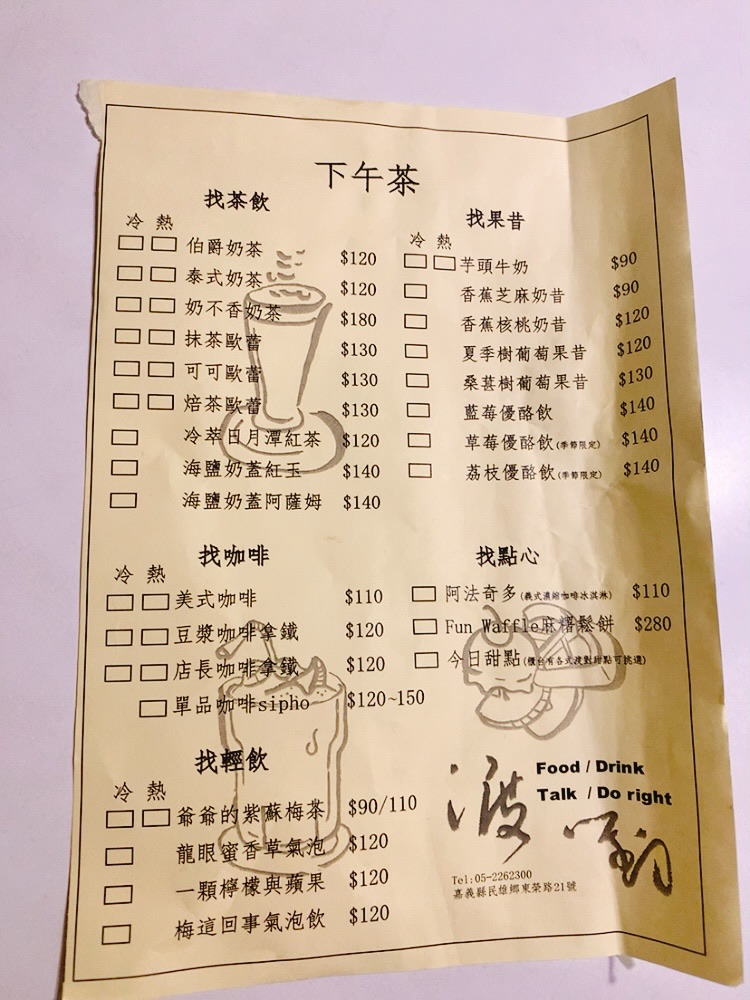 下午茶
找茶飲
冷 熱
伯爵奶茶 $120
泰式奶茶 $120
奶不香奶茶 $180
抹茶歐蕾 $130
可可歐蕾 $130
焙茶歐蕾 $130
冷萃日月潭紅茶 $120
海鹽奶蓋紅玉 $140
海鹽奶蓋阿薩姆 $140
找果昔
冷 熱
芋頭牛奶 $90
香蕉芝麻奶昔 $90
香蕉核桃奶昔 $120
夏季樹葡萄果昔 $120
桑葚樹葡萄果昔 $130
藍莓優酪飲 $140
草莓優酪飲(季節限定) $140
荔枝優酪飲(季節限定) $140
找咖啡
冷 熱
美式咖啡 $110
豆漿咖啡拿鐵 $120
店長咖啡拿鐵 $120
單品咖啡sipho $120~150
找點心
阿法奇多(義式濃縮咖啡冰淇淋) $110
Fun Waffle麻糬鬆餅 $280
今日甜點(櫃台有各式渡對甜點可挑選)
找輕飲
冷 熱
爺爺的紫蘇梅茶 $90/110
龍眼蜜香草氣泡 $120
一顆檸檬與蘋果 $120
梅這回事氣泡飲 $120
Food / Drink
Talk / Do right
Tel:05-2262300
嘉義縣民雄鄉東榮路21號